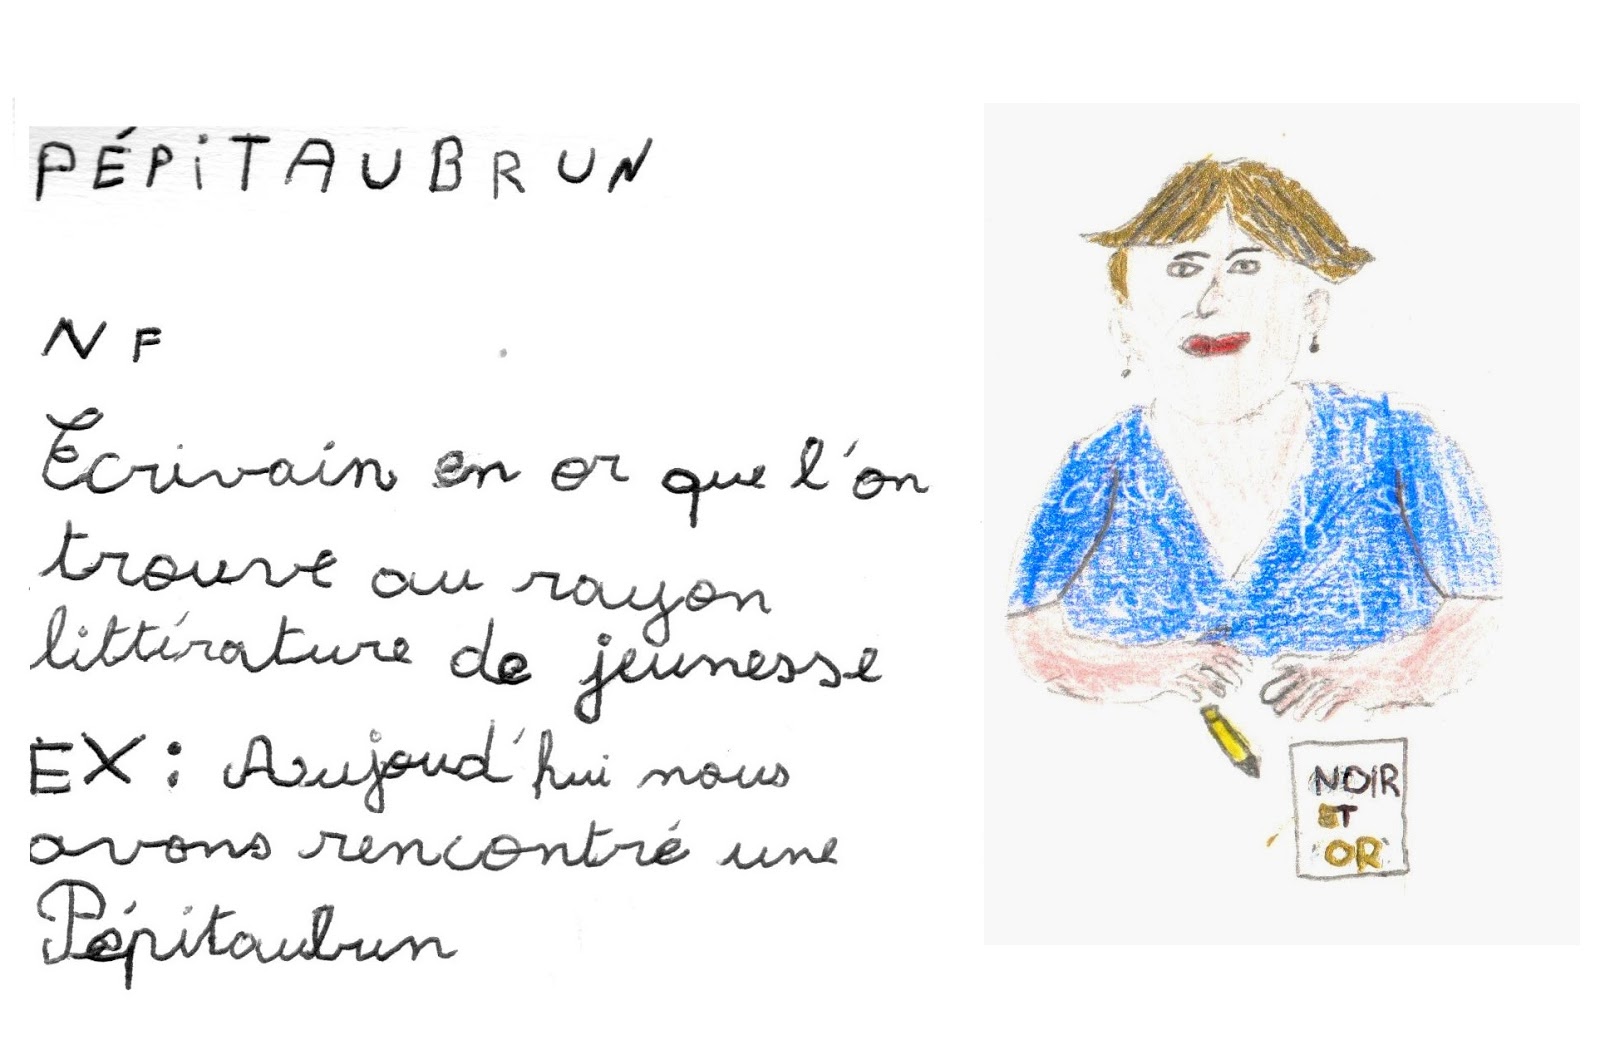 PÉPiTAUBRUN
NF
Ecrivain en or que l'on
trouve au rayon
littérature de jeunesse
EX : Aujourd'hui nous
avons rencontré une
Pépitaubrun
NOIR
ET
OR